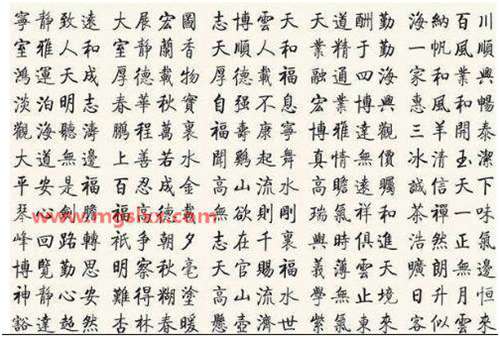 寧靜致遠 大展宏圖 志博雲天 天道酬勤 海納百川
室雅人和 室靜蘭香 大順人和 業精于勤 一帆風順
鴻運天成 厚德載物 厚德載福 融通四海 家和業興
淡泊明志 春華秋實 自强不息 宏業博興 惠風和暢
觀海聽濤 鵬程萬裏 福壽康寧 博雅達觀 三羊開泰
大道無邊 上善若水 聞鷄起舞 真情無價 冰清玉潔
平安是福 百忍成金 高山流水 高瞻遠矚 誠信天下
琴心劍膽 福 無欲則剛 瑞氣祥和 茶禪一味
峰回路轉 祇爭朝夕 志在千裏 與時俱進 浩然正氣
博覽勤思 明察秋毫 天官賜福 義薄雲天 曠朗無邊
神靜心安 難得糊塗 高山流水 學無止境 日升月恒
豁達超然 杏林春暖 懸壺濟世 紫氣東來 客似雲來